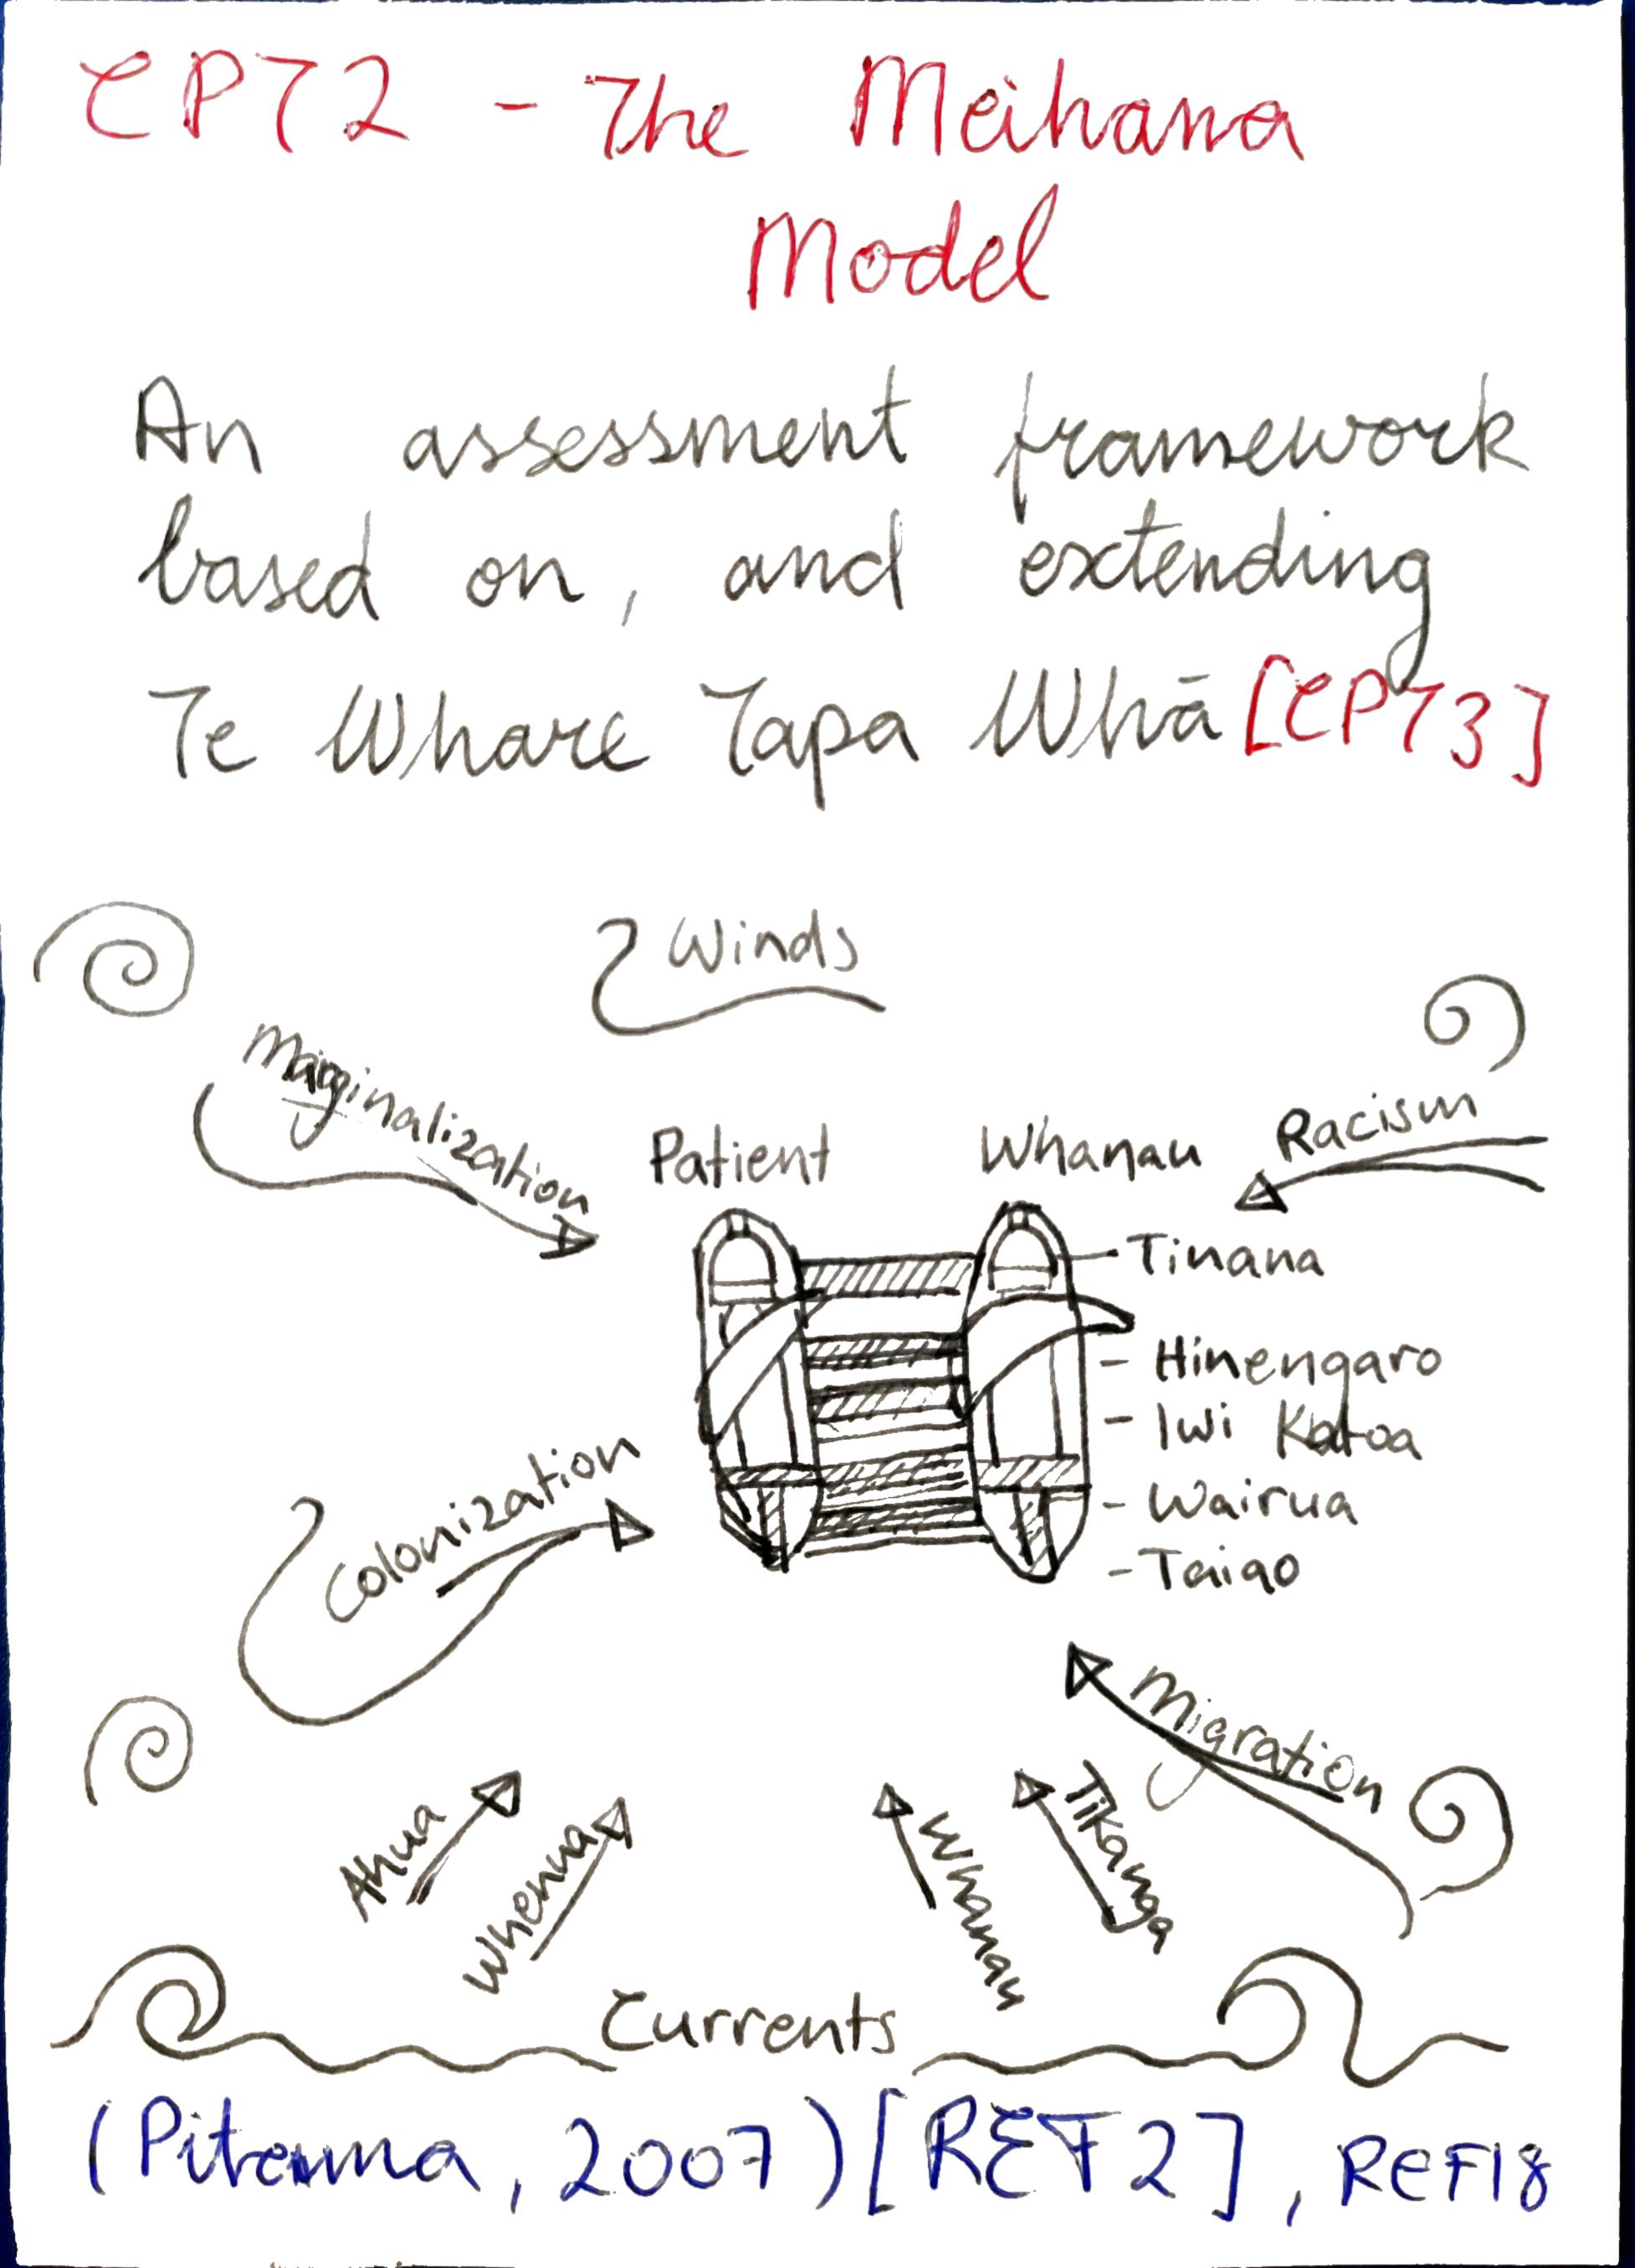 CPT2 - The Meihana
Model
An assessment framework
based on, and extending
Te Whare Tapa Whā [CPT3]
Winds
Marginalization
Patient
Whanau
Racism
Tinana
- Hinengaro
- Iwi Katoa
- Wairua
- Taiao
Colonization
Migration
Ahua
Whenua
Whanau
Tikanga
Currents
(Pitama, 2007) [REF2], REF18